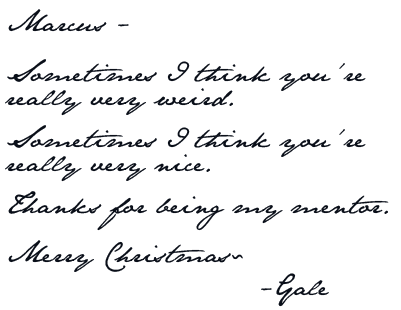 Marcus -
Sometimes I think you're
really very weird.
Sometimes I think you're
really very nice.
Thanks for being my mentor.
Merry Christmas~
-Gale